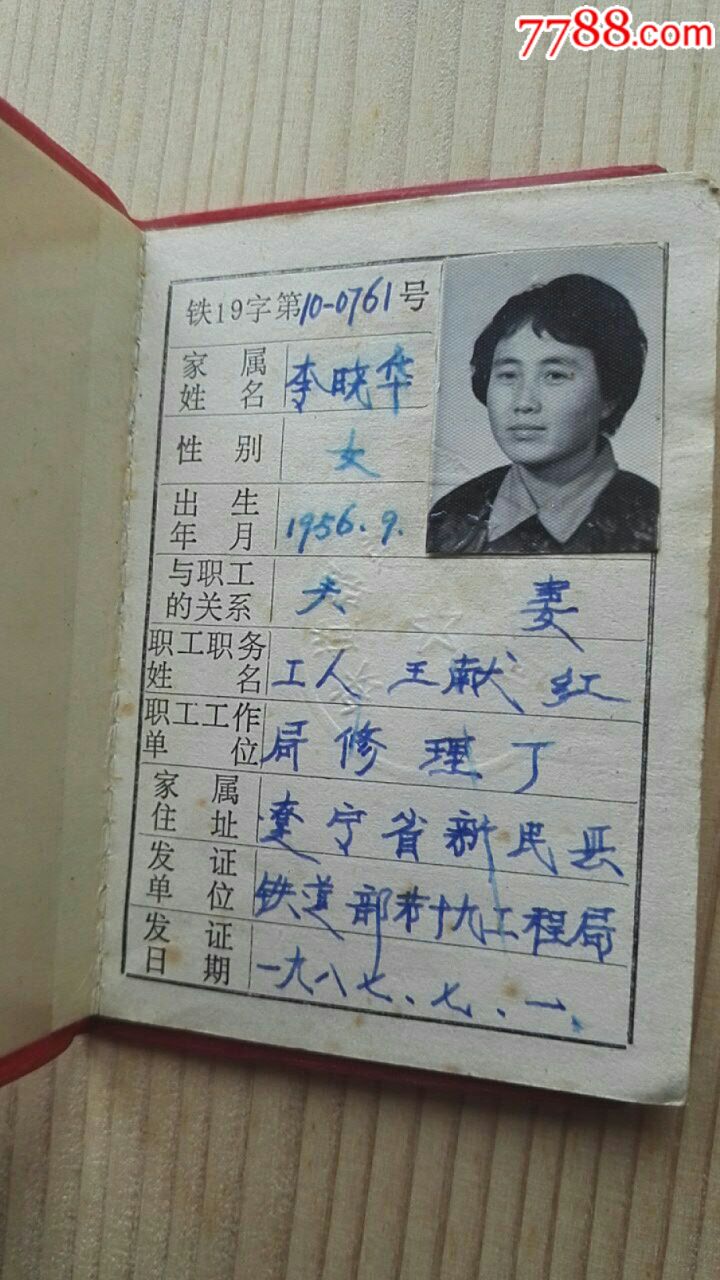 7788.com
铁19字第10-0761号
家属姓名 李晓华
性别 女
出生年月 1956.9.
与职工的关系 夫妻
职工职务姓名 工人 王献红
职工工作单位 局修理厂
家属住址 辽宁省新民县
发证单位 铁道部第十九工程局
发证日期 一九八七、七、一、